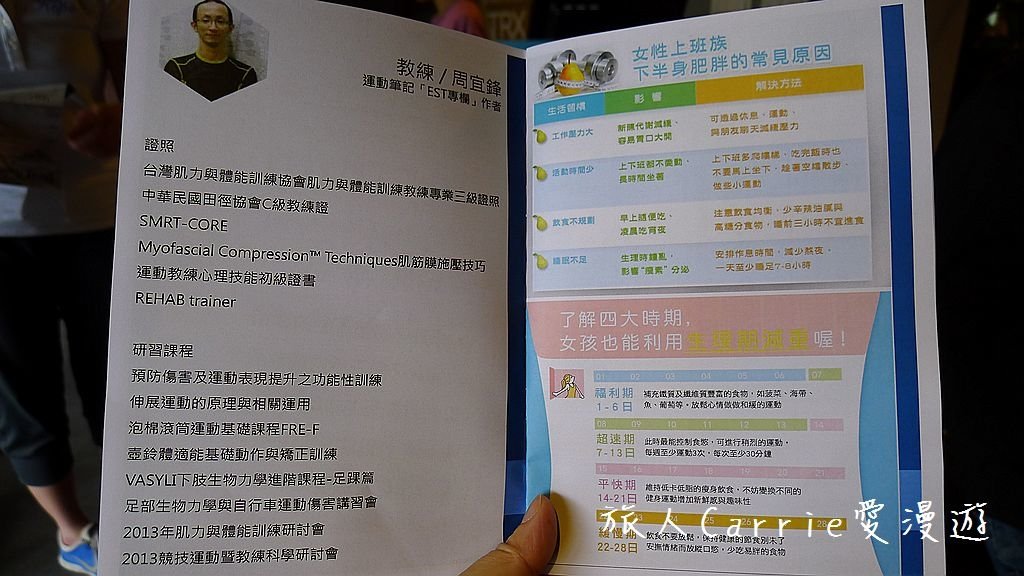 教練 / 周宜鋒
運動筆記「EST專欄」作者
證照
台灣肌力與體能訓練協會肌力與體能訓練教練專業三級證照
中華民國田徑協會C級教練證
SMRT-CORE
Myofascial Compression™ Techniques肌筋膜施壓技巧
運動教練心理技能初級證書
REHAB trainer
研習課程
預防傷害及運動表現提升之功能性訓練
伸展運動的原理與相關運用
泡棉滾筒運動基礎課程FRE-F
壺鈴體適能基礎動作與矯正訓練
VASYLI下肢生物力學進階課程-足踝篇
足部生物力學與自行車運動傷害講習會
2013年肌力與體能訓練研討會
2013競技運動暨教練科學研討會
TRX
女性上班族
下半身肥胖的常見原因
生活習慣 影響 解決方法
工作壓力大
新陳代謝減緩、
容易胃口大開
可透過休息、運動、
與朋友聊天減緩壓力
活動時間少
上下班都不愛動、
長時間坐著
上下班多爬樓梯、吃完飯時也
不要馬上坐下，趁著空檔散步、
做些小運動
飲食不規劃
早上隨便吃、
凌晨吃宵夜
注意飲食均衡，少辛辣油膩與
高糖分食物，睡前三小時不宜進食
睡眠不足
生理時鐘亂，
影響"瘦素"分泌
安排作息時間，減少熬夜，
一天至少睡足7-8小時
了解四大時期，
女孩也能利用生理期減重喔！
01 02 03 04 05 06 07
福利期
1-6日
補充鐵質及纖維質豐富的食物，如菠菜、海帶、
魚、葡萄等。放鬆心情做做和緩的運動
08 09 10 11 12 13 14
超速期
7-13日
此時最能控制食慾，可進行稍烈的運動，
每週至少運動3次，每次至少30分鐘
15 16 17 18 19 20 21
平快期
14-21日
維持低卡低脂的瘦身飲食，不妨變換不同的
健身運動增加新鮮感與趣味性
23 24 25 26 28
緩慢期
22-28日
飲食不要放鬆，保持健康的節食別未了
安撫情緒而放縱口慾，少吃易胖的食物
旅人Carrie愛漫遊